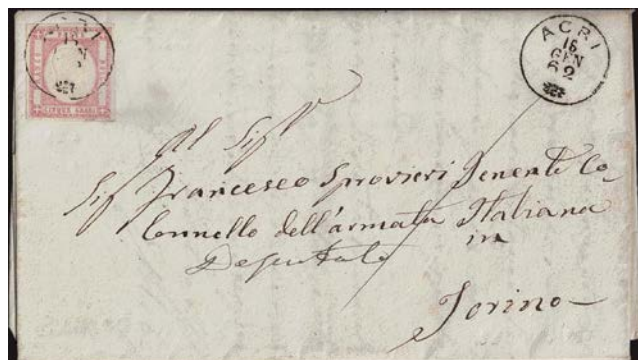 ACRI
16
GEN
62
CINQUE GRANA
Al Sigr
Sigr Francesco Sprovieri Tenente Co-
lonnello dell'armata Italiana
Deputato in
Torino